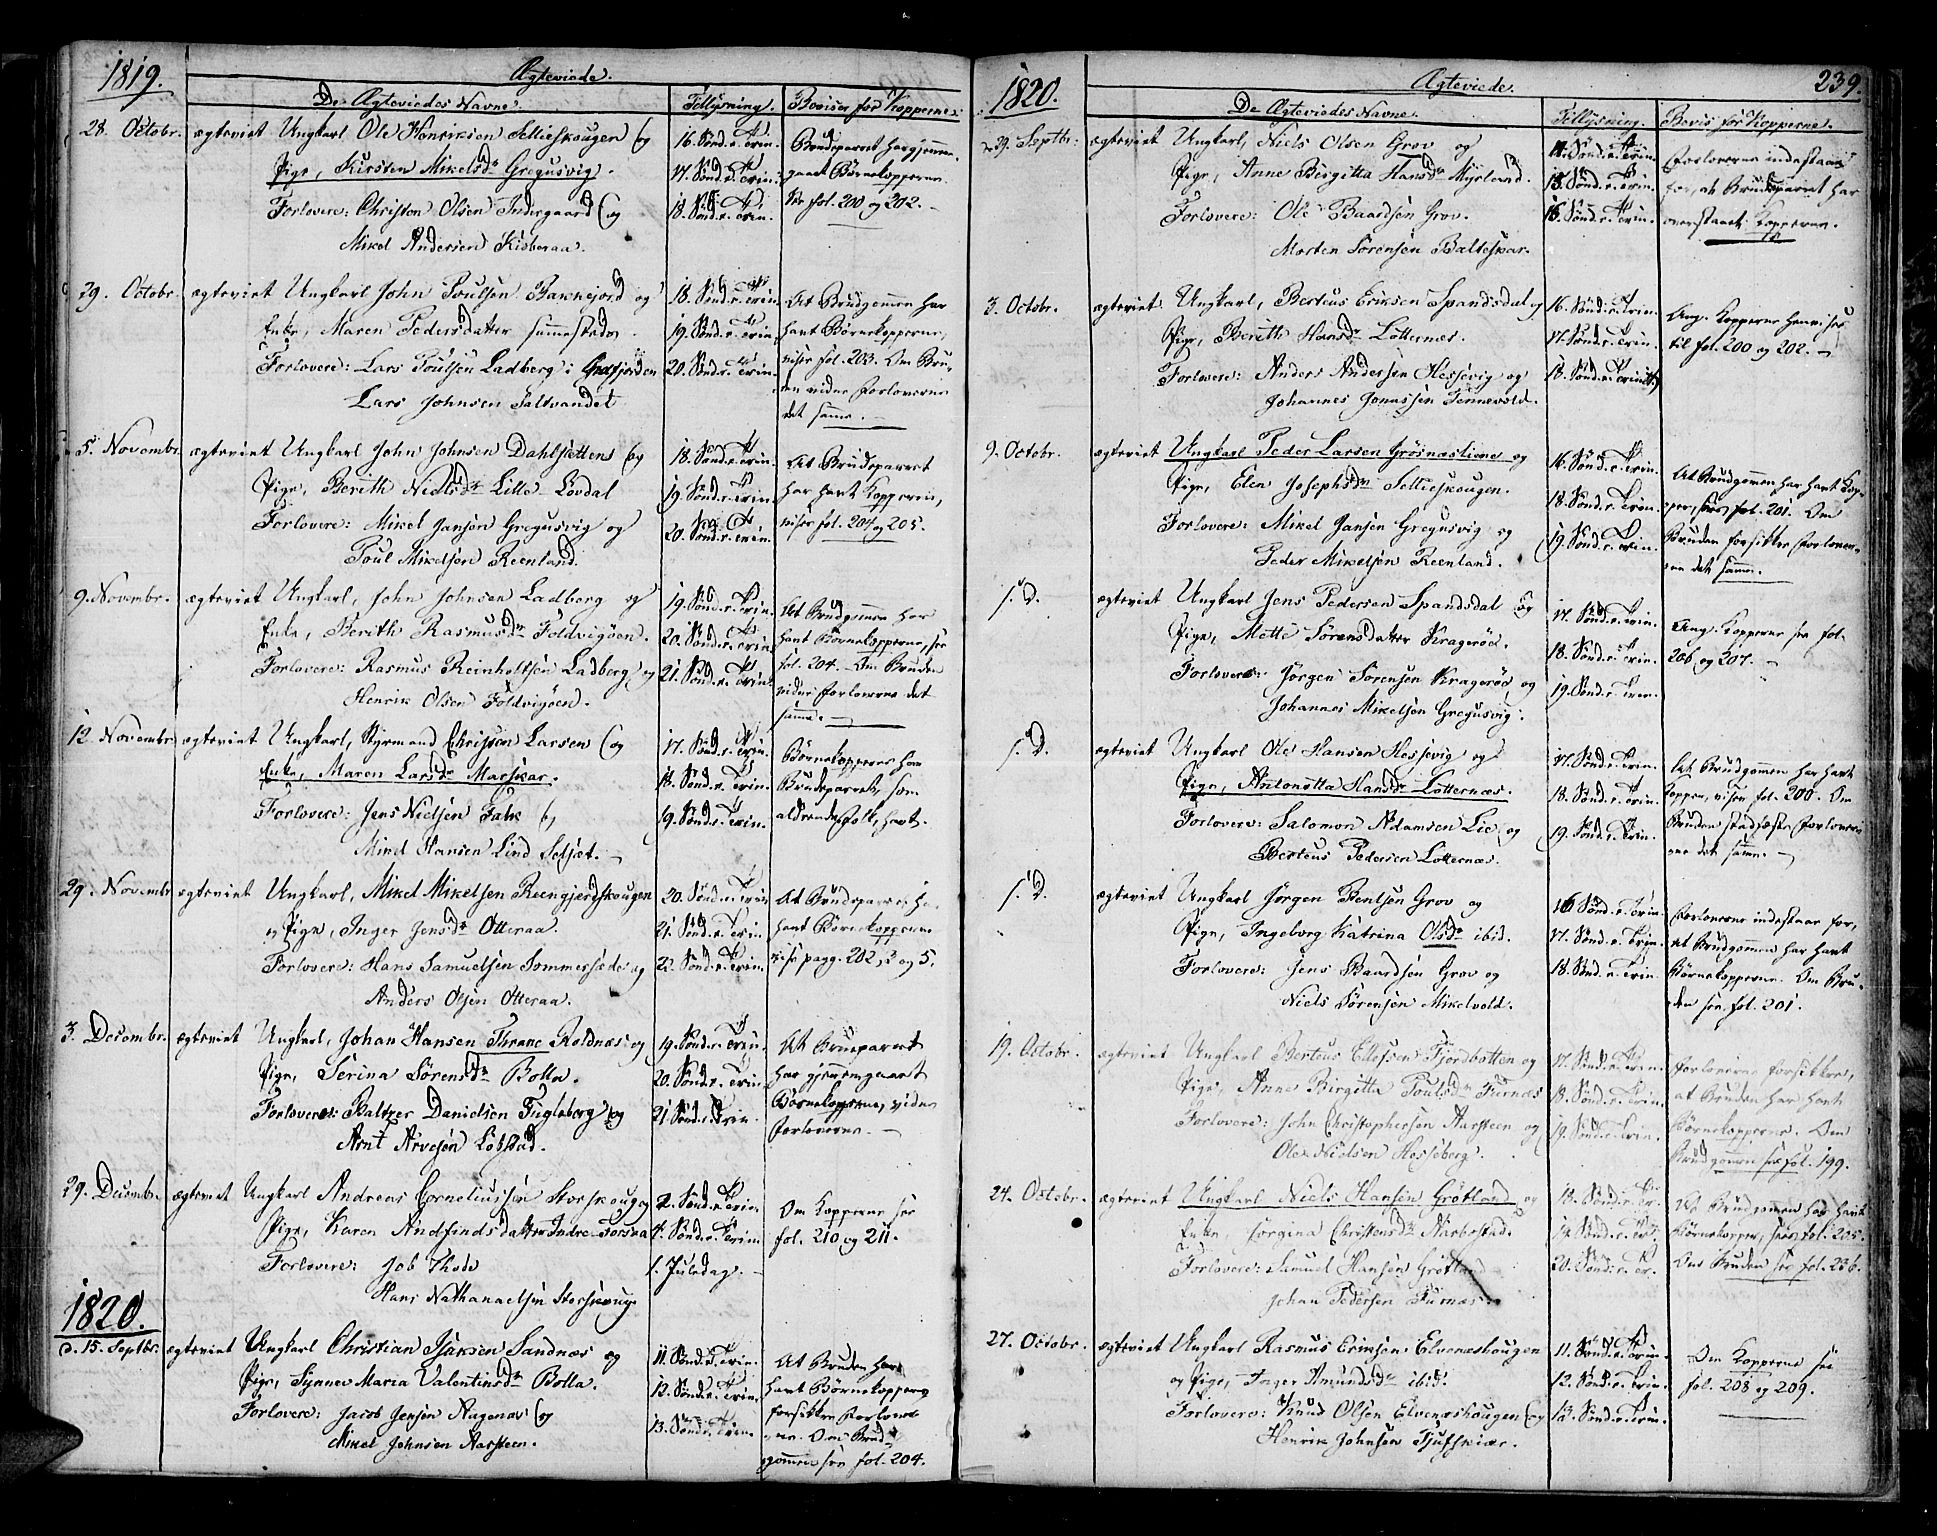 1819.
Ægteviede.
De Ægteviedes Navne.
Tillysning.
Beviser for Kopperne.
28. Octobr. ægteviet Ungkarl Ole Henriksen Sellieskougen og
Pige, Kirsten Mikelsdr Gregusvig.
Forlovere: Christen Olsen Indergaard og
Mikel Andersen
16. Sønd. e. Trin.
17. Sønd. e. Trin.
18. Sønd. e. Trin.
Brudeparret har gjennem-
gaaet Børnekopperne.
fol. 200 og 202.
29. Octobr. ægteviet Ungkarl John Poulsen Bakkejord og
Enke, Maren Pedersdatter sammesteds
Forlovere: Lars Poulsen Ladberg i
Lars Johnsen Saltvandet
18. Sønd. e. Trin.
19. Sønd. e. Trin.
20. Sønd. e. Trin.
At Brudgommen har
havt Børnekopperne,
vises fol. 203. Om Bru-
den vidner Forloverne
det samme.
5. Novembr. ægteviet Ungkarl John Johnsen Dahlslettens og
Pige, Berith Nielsdr Lille Lovdal
Forlovere: Mikel Jansen Gregusvig og
Poul Mikelsen Reenland.
18. Sønd. e. Trin.
19. Sønd. e. Trin.
20. Sønd. e. Trin.
At Brudeparret
har havt Kopperne,
vises fol. 204 og 205.
9. Novembr. ægteviet Ungkarl, John Johnsen Ladberg og
Enke, Berith Rasmusdr Foldvigøen.
Forlovere: Rasmus Reinholtsen Ladberg og
Henrik Olsen Foldvigøen.
19. Sønd. e. Trin.
20. Sønd. e. Trin.
21. Sønd. e. Trin.
At Brudgommen har
havt Børnekopperne, see
fol. 204. Om Bruden
vidner Forloverne det
samme.
12. Novembr. ægteviet Ungkarl, Styrmand Christen Larsen og
Enke, Maren Larsdr Marskar.
Forlovere: Jens Nielsen Falk og
Mikel Hansen Lind
17. Sønd. e. Trin.
18. Sønd. e. Trin.
19. Sønd. e. Trin.
Børnekopperne har
Brudeparret, som
aldrende Folk, havt.
29. Novembr. ægteviet Ungkarl, Mikel Mikelsen Reengjerdskougen
og Pige, Inger Jensdr Otteraa.
Forlovere: Hans Samuelsen Sommersæde og
Anders Olsen Otteraa.
20. Sønd. e. Trin.
21. Sønd. e. Trin.
22. Sønd. e. Trin.
At Brudeparret
havt Børnekopperne
pagg. 202, 3 og 5.
3. Decembr. ægteviet Ungkarl, Johan Hansen Thrane Roldnæs og
Pige, Serina Sørensdr Bolla.
Forlovere: Baltzer Danielsen Fugleberg og
Arnt Arvesen Løbstad.
19. Sønd. e. Trin.
20. Sønd. e. Trin.
21. Sønd. e. Trin.
At Brueparret
har gjennemgaaet
Børnekopperne, vidne
Forloverne.
29. Decembr. ægteviet Ungkarl Andreas Corneliussen Storskoug og
Pige, Karen Andfindsdatter Indre-Forsaa
Forlovere: Job Thode
Hans Nathanaelsen
Sønd. e. Trin.
Sønd. e. Trin.
1. Juledag.
Om Kopperne see
fol. 210 og 211.
1820.
d. 15. Septbr. ægteviet Ungkarl Christian Isaksen Sandnæs og
Pige, Synnev Maria Valentinsdr Bolla.
Forlovere: Jacob Jensen Aagenæs og
Mikel Johnsen Aarsteen.
11. Sønd. e. Trin.
12. Sønd. e. Trin.
13. Sønd. e. Trin.
At Bruden har
havt Børnekopperne
forsikkre Forlover-
ne. Om Brud-
gommen see fol. 204.
1820.
Ægteviede.
239.
De Ægteviedes Navne.
Tillysning.
Bevis for Kopperne.
29. Septbr: ægteviet Ungkarl, Niels Olsen Grov og
Pige, Anne Birgitta Hansdr Myrland.
Forlovere: Ole Baardsen Grov.
Morten Sørensen Balteskar.
Sønd. e. Trin.
Sønd. e. Trin.
16. Sønd. e. Trin.
Forloverne indestaar
for, at Brudeparret har
overstaaet Kopperne.
3. Octobr. ægteviet Ungkarl, Berteus Eriksen Spandsdal og
Pige, Berith Hansdr Lotternæs.
Forlovere: Anders Andersen Hessevig og
Johannes Jonassen Tennevold.
16. Sønd. e. Trin.
17. Sønd. e. Trin.
18. Sønd. e. Trin.
Ang. Kopperne henvises
til fol. 200 og 202.
9. Octobr. ægteviet Ungkarl Peder Larsen Grøsnæsliene og
Pige, Elen Josephsdr Sellieskougen.
Forlovere: Mikel Jansen Gregusvig og
Peder Mikelsen Reenland.
16. Sønd. e. Trin.
18. Sønd. e. Trin.
19. Sønd. e. Trin.
At Brudgommen har havt Kop-
per, sees fol. 201. Om
Bruden forsikkre Forlover-
ne det samme.
s. D. ægteviet Ungkarl Jens Pedersen Spandsdal og
Pige, Mette Sørensdatter Kragerød.
Forlovere: Jørgen Sørensen Kragerød og
Johannes Mikelsen Gregusvig.
17. Sønd. e. Trin.
18. Sønd. e. Trin.
19. Sønd. e. Trin.
Ang. Kopperne see fol.
206 og 207.
s. D. ægteviet Ungkarl Ole Hansen Hessevig og
Pige, Antonetta Hansdr Lotternæs.
Forlovere: Salomon Adamsen Lie og
Berteus Pedersen Lotternæs.
17. Sønd. e. Trin.
18. Sønd. e. Trin.
19. Sønd. e. Trin.
At Brudgommen har havt
Kopper, vises fol. 200. Om
Bruden stadfæste Forlover-
ne det samme.
s. D. ægteviet Ungkarl Jørgen Bentsen Grov og
Pige, Ingeborg Katrina Olsdr ibid.
Forlovere: Jens Baardsen Grov og
Niels Sørensen Mikelvold.
16. Sønd. e. Trin.
17. Sønd. e. Trin.
18. Sønd. e. Trin.
Forloverne indestaar for,
at Brudgommen har havt
Børnekopperne. Om Bru-
den see fol. 201.
19. Octobr. ægteviet Ungkarl Berteus Ellefsen Fjordbotten og
Pige, Anne Birgitta Poulsdr Furnæs
Forlovere: John Christophersen Aarsteen og
Ole Nielsen Hesseberg.
17. Sønd. e. Trin.
18. Sønd. e. Trin.
19. Sønd. e. Trin.
Forloverne forsikkre,
at Bruden har havt
Børnekopperne. Om
Brudgommen see fol. 199.
24. Octobr. ægteviet Ungkarl Niels Hansen Grøtland og
Enke, Jorgina Christensdr Aarbostad.
Forlovere: Samuel Hansen Grøtland
Johan Pedersen Furnæs.
18. Sønd. e. Tr.
19. Sønd. e. Tr.
20. Sønd. e. Tr.
At Brudgommen har havt
Børnekopper, sees fol. 205.
Om Bruden see fol. 236.
27. Octobr. ægteviet Ungkarl Rasmus Eriksen Elvenæshougen
og Pige, Inger Amundsdr ibid.
Forlovere: Knud Olsen Elvenæshougen og
Henrik Johnsen
11. Sønd. e. Trin.
12. Sønd. e. Trin.
13. Sønd. e. Trin.
Om Kopperne see
fol. 208 og 209.